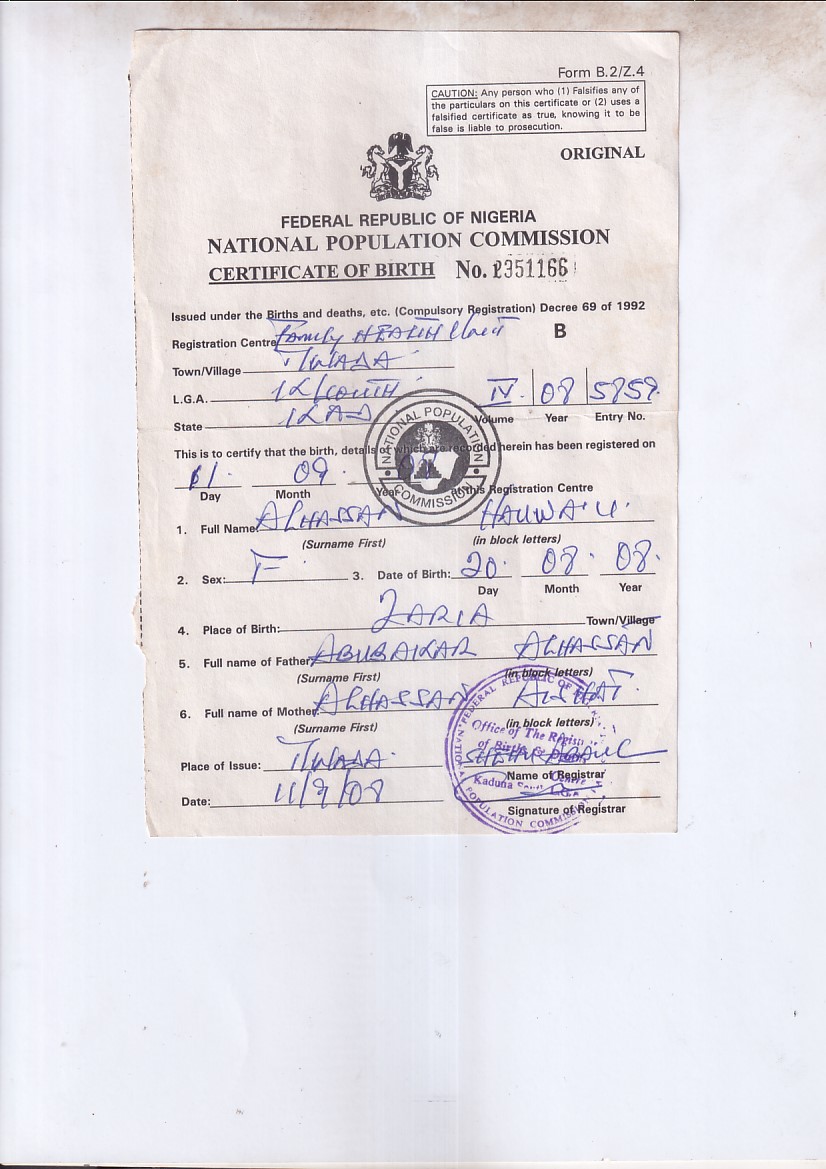 Form B.2/Z.4
CAUTION: Any person who (1) Falsifies any of
the particulars on this certificate or (2) uses a
falsified certificate as true, knowing it to be
false is liable to prosecution.
ORIGINAL
FEDERAL REPUBLIC OF NIGERIA
NATIONAL POPULATION COMMISSION
CERTIFICATE OF BIRTH No. 2351166
Issued under the Births and deaths, etc. (Compulsory Registration) Decree 69 of 1992
Registration Centre Family HEALTH Unit B
Town/Village T/WADA
L.G.A. K/SOUTH IV. 08 5859
State KAD Volume Year Entry No.
This is to certify that the birth, details of which are recorded herein has been registered on
11. 09. 08
Day Month Year at this Registration Centre
1. Full Name: ALHASSAN HAUWA'U.
(Surname First) (in block letters)
2. Sex: F. 3. Date of Birth: 20. 08. 08.
Day Month Year
4. Place of Birth: ZARIA Town/Village
5. Full name of Father: ABUBAKAR ALHASSAN
(Surname First) (in block letters)
6. Full name of Mother: ALHASSAN
(Surname First) (in block letters)
Place of Issue: T/WADA.
Name of Registrar
Date: 11/9/08
Signature of Registrar
NATIONAL POPULATION COMMISSION
FEDERAL REPUBLIC OF
Office of The
of Birth
Kaduna
POPULATION COMMISSION